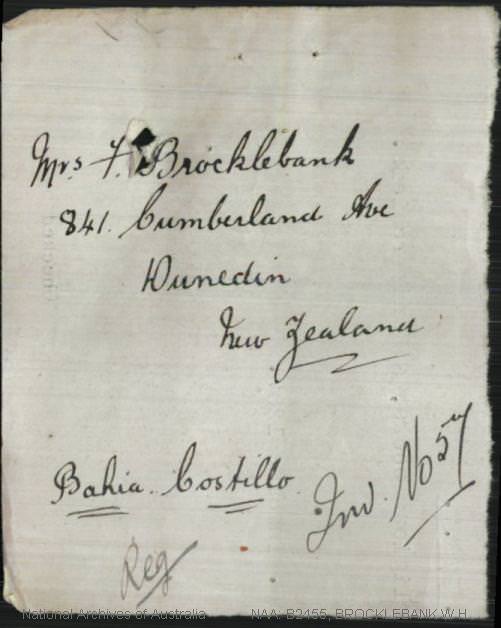 Mrs F. Brocklebank
841. Cumberland Ave
Dunedin
New Zealand
Bahia. Costillo.
Inv. No 57
Reg
National Archives of Australia NAA: B2455, BROCKLEBANK W H